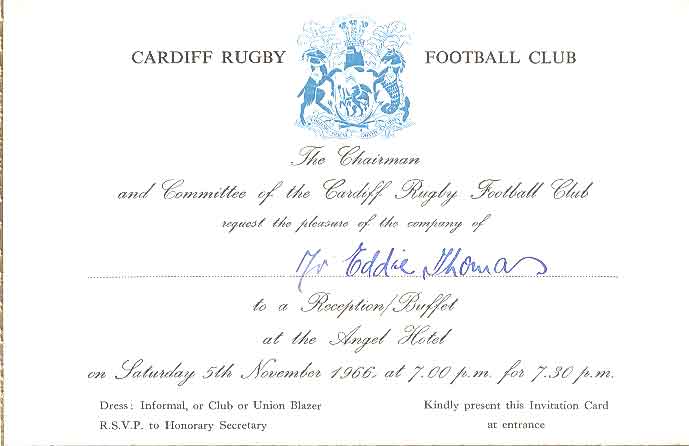 CARDIFF RUGBY FOOTBALL CLUB
The Chairman
and Committee of the Cardiff Rugby Football Club
request the pleasure of the company of
Mr Eddie Thomas
to a Reception/Buffet
at the Angel Hotel
on Saturday 5th November 1966, at 7.00 p.m. for 7.30 p.m.
Dress: Informal, or Club or Union Blazer
R.S.V.P. to Honorary Secretary
Kindly present this Invitation Card
at entrance